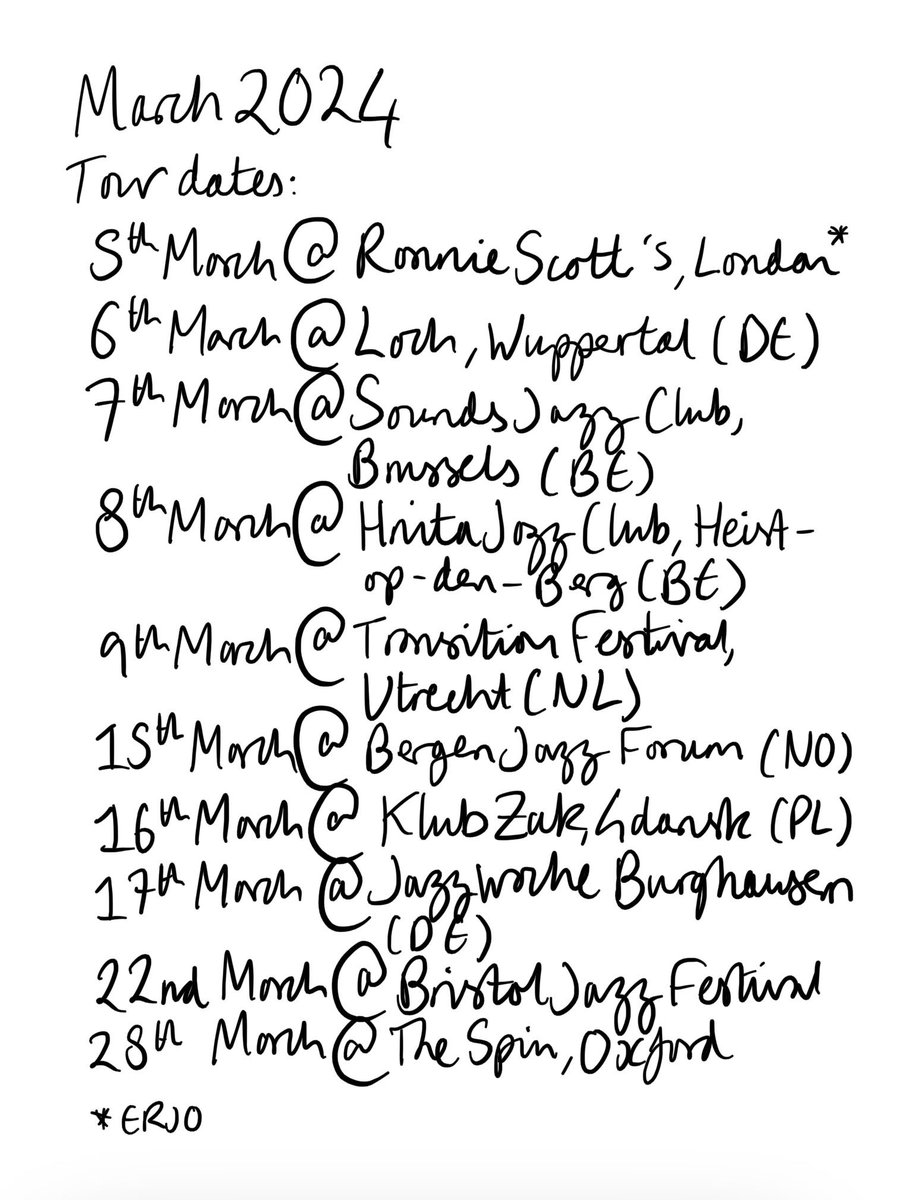 March 2024
Tour dates:
5th March @ Ronnie Scott's, London*
6th March @ Loch, Wuppertal (DE)
7th March @ Sounds Jazz Club,
Brussels (BE)
8th March @ Hnita Jazz Club, Heist-
op-den-Berg (BE)
9th March @ Transition Festival,
Utrecht (NL)
15th March @ Bergen Jazz Forum (NO)
16th March @ Klub Zak, Gdansk (PL)
17th March @ Jazzwoche Burghausen
(DE)
22nd March @ Bristol Jazz Festival
28th March @ The Spin, Oxford
*ERJO